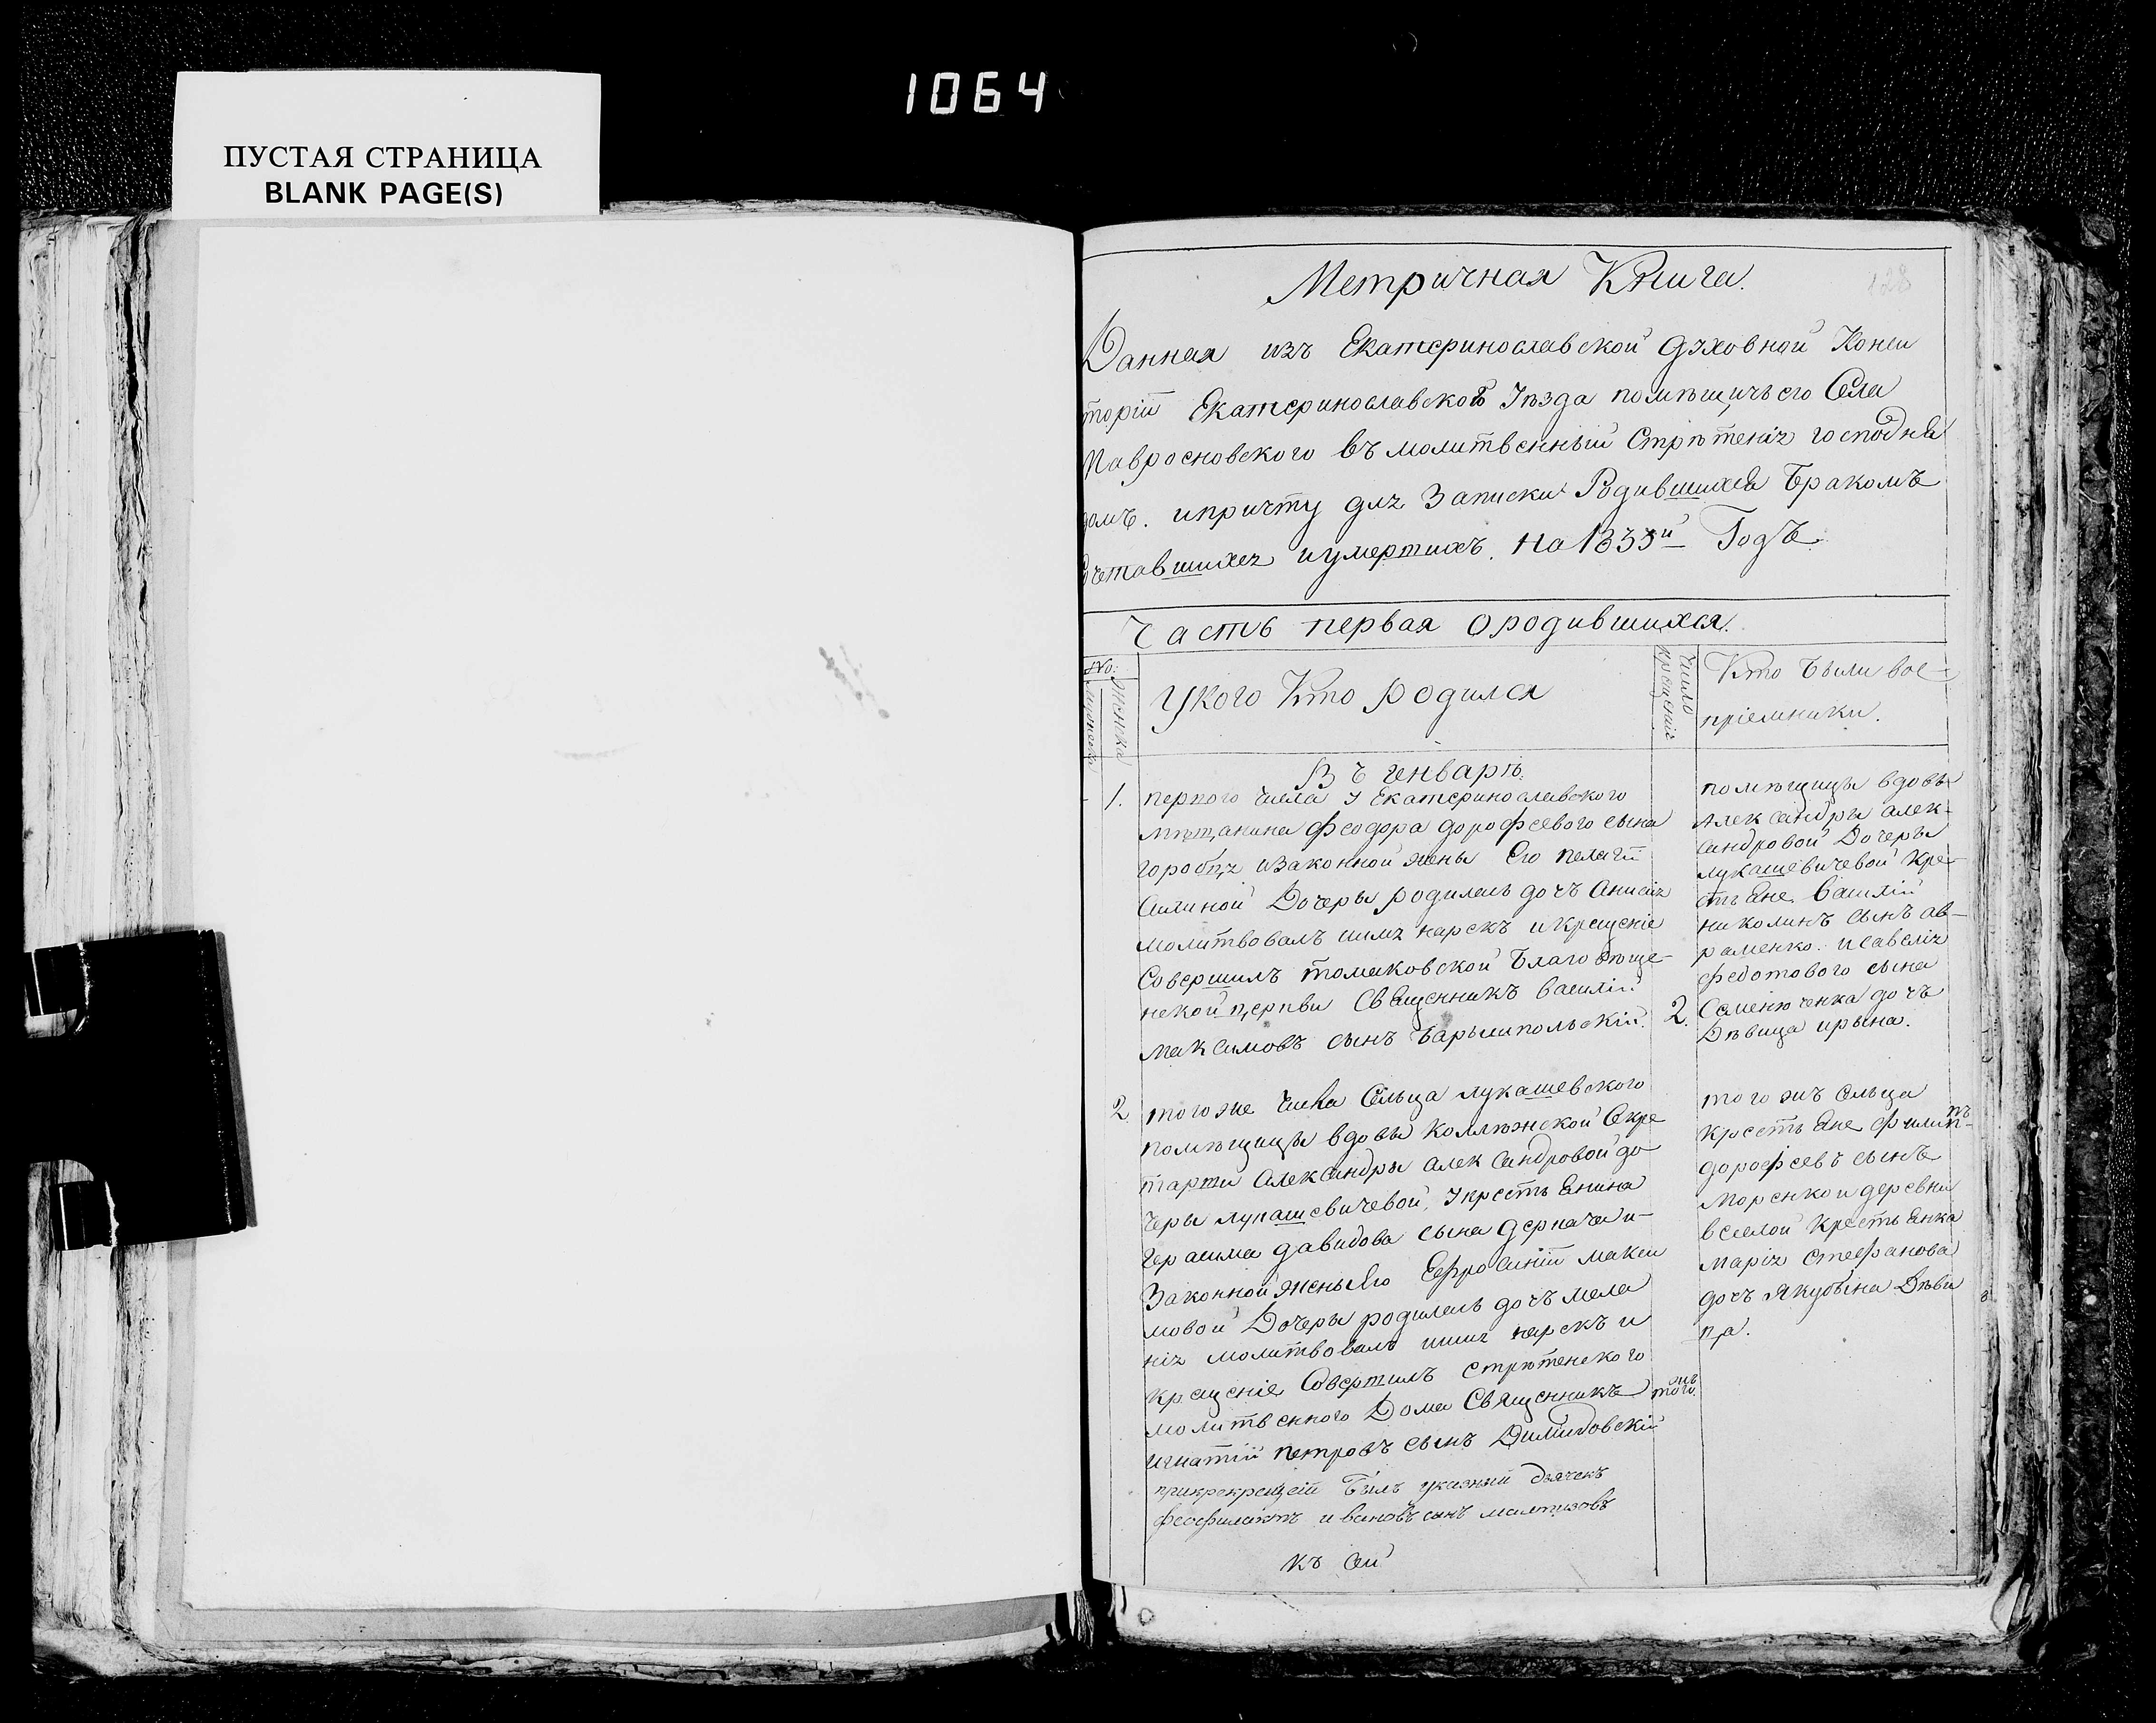 1064
ПУСТАЯ СТРАНИЦА
BLANK PAGE(S)
Метричная Книга.
128
Данная изъ Екатеринославской духовной Конси
торіи Екатеринославского Уѣзда помѣщичьего Села
Навросновского въ молитвенный Стрѣтенія господня
домъ. и причту для Записки Родившихся Бракомъ
четавшихся и умертихъ. На 1833й Годъ.
Часть первая о родившихся.
No:
женска
У кого Кто родился
Число
крещенія
Кто были вос-
пріемники.
Въ генварѣ.
1. первого числа у Екатеринославского
мѣщанина феодора дорофеевого сына
горобця и законной жены Его пелагіи
Дочеры родилась дочъ Анисия
молитвовалъ имя нарекъ и крещеніе
Совершилъ томаковской Благовѣще-
нской церкви Священникъ василій
максимовъ сынъ Барышпольскій.
2.
помѣщицы вдовы
Александры алек-
сандровой Дочеры
лукашевичевой кре-
стьяне василій
николинъ сынъ ав-
раменко. и савелія
федотового сына
Семенюченка дочъ
Дѣвица ирына.
2 того же числа Сельца лукашевского
помѣщицы вдовы Коллежской Секре
тарши Александры александровой до
черы лукашевичевой, у крестьянина
герасима давидова сына дерпача и
Законной жены Его Ефросиніи макси
мовой Дочеры родилась дочъ мела
нія молитвовалъ имя нарекъ и
крещеніе Совершилъ стрѣтенского
молитвенного Дома Священникъ
игнатій петровъ сынъ Димидовскій
былъ указный дьячекъ
феофилактъ ивановъ сынъ
того
того жъ сельца
крестьяне филипъ
дорофеевъ сынъ
моренко и деревни
веселой крестьянка
марія стефанова
дочъ якубына Дѣви
ца.
къ сей